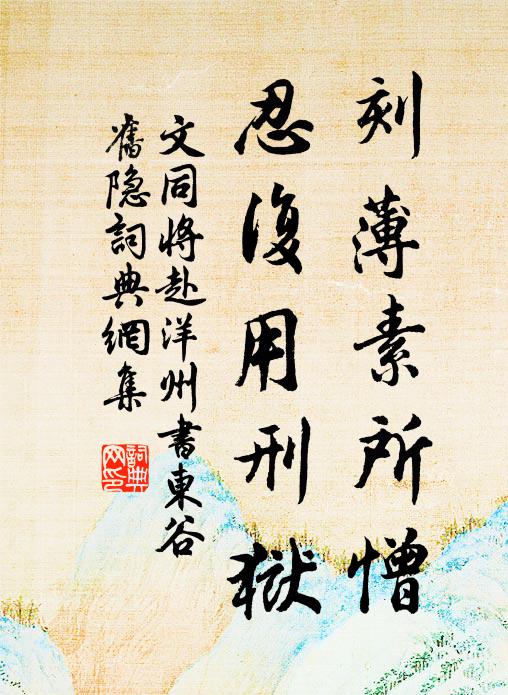 刻薄素所憎
忍復用刑獄
文同將赴洋州書東谷
舊隐詞典網集
詞典网印